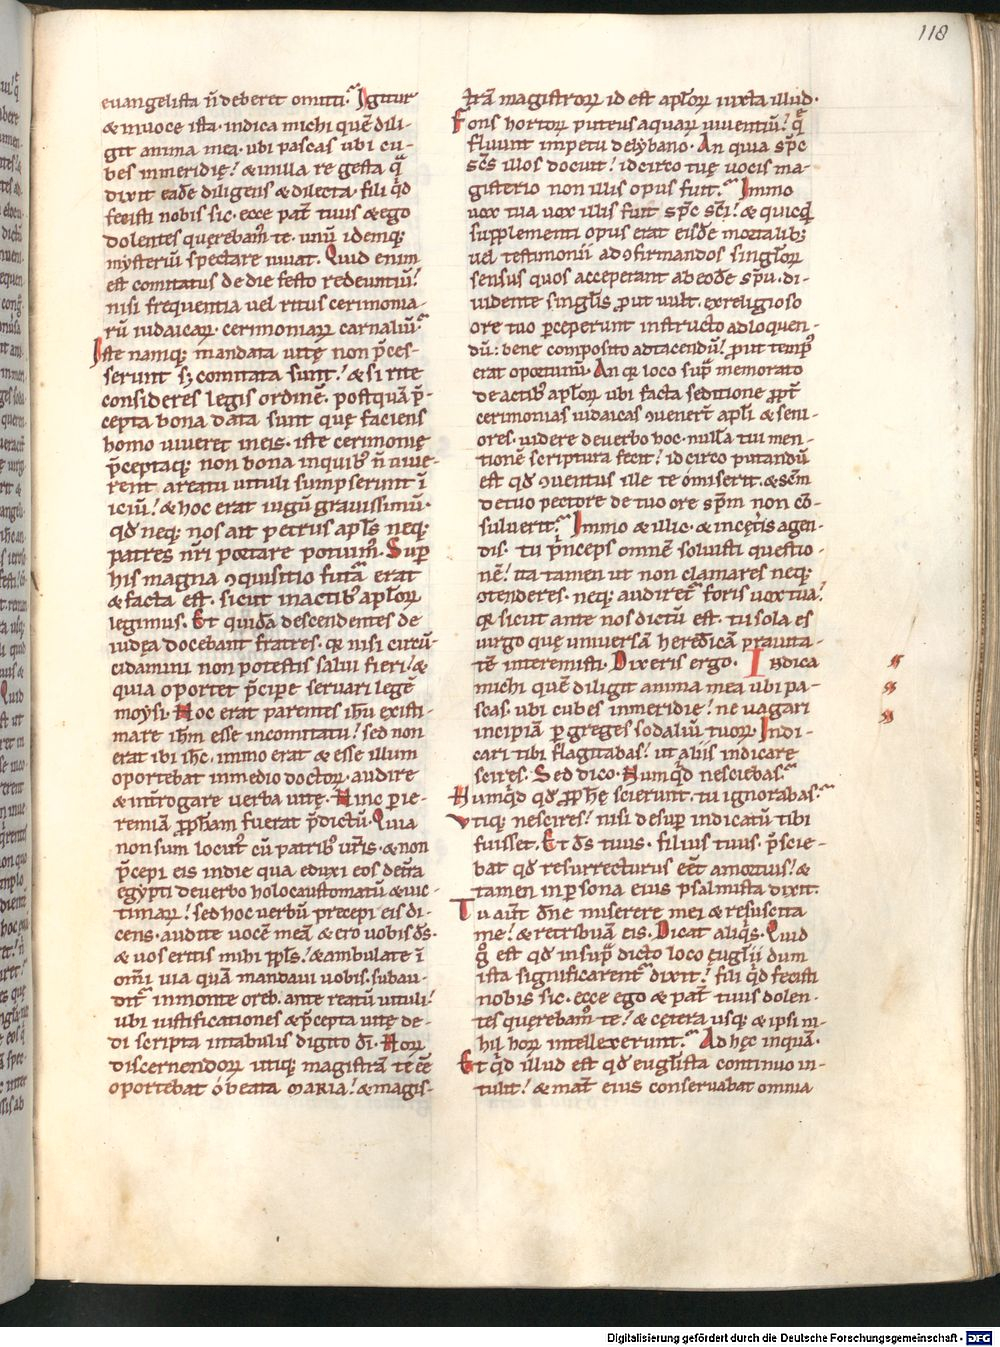 118
euangelista n̄ deberet omitti. Igitur
& in uoce ista. indica michi quē dili-
git anima mea. ubi pascas ubi cu-
bes in meridie. & in illa re gesta q̄
dixit eadē diligens & dilecta. fili q̇d
fecisti nobis sic. ecce pat̄ tuus & ego
dolentes querebam̄ te. unū idemq;
mysteriū spectare iuuat. Quid enim
est comitatus de die festo redeuntiū?
nisi frequentia uel ritus cerimonia-
rū iudaicaꝝ. cerimoniaꝝ carnaliū.
Iste namq; mandata uitę non p̄ces-
serunt sꝫ comitata sunt. & si rite
consideres legis ordinē. postquā p̄-
cepta bona data sunt quę faciens
homo uiueret in eis. iste cerimonię
p̄ceptaq; non bona in quib; n̄ uiue-
rent a reatu uituli sumpserunt ī
iciū. & hoc erat iugū grauissimū.
qd̄ neq; nos ait petrus apl̄s neq;
patres nr̄i portare potuim̄. Sup̄
his magna ꝯquisitio futa erat
& facta est. sicut in actib; apl̄oꝝ
legimus. Et quidā descendentes de
iudęa docebant fratres. qꝛ nisi circū-
cidamini non potestis salui fieri. &
quia oportet p̄cipe seruari legē
moysi. Hoc erat parentes ih̄u existi-
mare ih̄m esse in comitatu. sed non
erat ibi ih̄c. immo erat & esse illum
oportebat in medio doctoꝝ. audire
& int̄rogare uerba uitę. Hinc p̄ ie-
remiā p̄ph̄am fuerat p̄dictū. Quia
non sum locut; cū patrib; ur̄is. & non
p̄cepi eis in die qua eduxi eos de t̄ra
egypti de uerbo holocaustomatū & uic-
timaꝝ. sed hoc uerbū precepi eis di-
cens. audite uocē meā & ero uobis d̄s.
& uos eritis mihi pp̄ls. & ambulate ī
om̄i uia quā mandaui uobis. subau-
dit̄ in monte oreb. ante reatū uituli.
ubi iustificationes & p̄cepta uitę de-
di scripta in tabulis digito dī. Hoꝝ
discernendoꝝ utiq; magistrā te ē̄e
oportebat ó beata maria. & magis-
trā magistroꝝ id est apl̄oꝝ iuxta illud.
Fons hortoꝝ puteus aquaꝝ uiuentiū. q̄
fluunt impetu de lybano. An quia sp̄c
sc̄s illos docuit. idcirco tuę uocis ma-
gisterio non illis opus fuit. Immo
uox tua uox illis fuit sp̄c sc̄i. & quicq̇d
supplementi opus erat eisdē mortalib;
uel testimonii ad ꝯfirmandos singl̄oꝝ
sensus quos acceperant ab eodē sp̄u. di-
uidente singl̄is p̄ut uult. ex religioso
ore tuo p̄ceperunt instructo ad loquen-
dū. bene composito ad tacendū. p̄ut temp;
erat oportunū. An qꝛ loco sup̄ memorato
de actib; apl̄oꝝ ubi facta seditione p̄pt̄
cerimonias iudaicas ꝯuenert̄ apl̄i & seni-
ores. uidere de uerbo hoc. nulla tui men-
tionē scriptura fecit. idcirco putandū
est qd̄ ꝯuentus ille te omiserit. & sc̄m
de tuo pectore de tuo ore sp̄m non cō-
suluerit. Immo & illic. & in cęteris agen-
dis. tu p̄nceps omnē soluisti questio-
nē. ita tamen ut non clamares neq;
ꝯtenderes. neq; audiret̄ foris uox tua.
qꝛ sicut ante nos dictū est. tu sola es
uirgo quę uniuersā heredicā prauita-
tē interemisti. Dixeris ergo. Indica
michi quē diligit anima mea ubi pa-
scas. ubi cubes in meridie. ne uagari
incipiā p̄ greges sodaliū tuoꝝ. Indi-
cari tibi flagitabas. ut aliis indicare
scires. Sed dico. Numq̇d nesciebas.
Numq̇d qd̄ p̄ph̄ę scierunt. tu ignorabas.
Vtiq; nescires. nisi desup̄ indicatū tibi
fuisset. Et d̄s tuus. filius tuus. p̄scie-
bat qd̄ resurrecturus eēt a mortuis. &
tamen in p̄sona eius psalmista dixit.
Tu aut̄ dn̄e miserere mei & resuscita
me. & retribuā eis. Dicat aliq̇s. Quid
ḡ est qd̄ in sup̄ dicto loco euglii dum
ista significarent̄ dixit. fili q̇d fecisti
nobis sic. ecce ego & pat̄ tuus dolen-
tes quęrebam̄ te. & cętera usq; & ipsi ni-
hil hoꝝ intellexerunt. Ad hęc inquā.
Et q̇d illud est qd̄ euglista continuo in-
tulit. & mat̄ eius conseruabat omnia
Digitalisierung gefördert durch die Deutsche Forschungsgemeinschaft - DFG